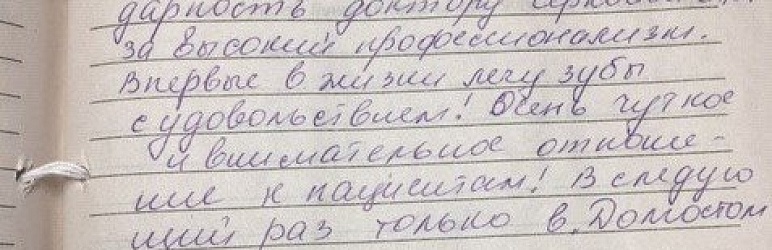 дарность доктору
за высокий профессионализм.
Впервые в жизни лечу зубы
с удовольствием! Очень чуткое
и внимательное отноше-
ние к пациентам! В следую
щий раз только в Домостом